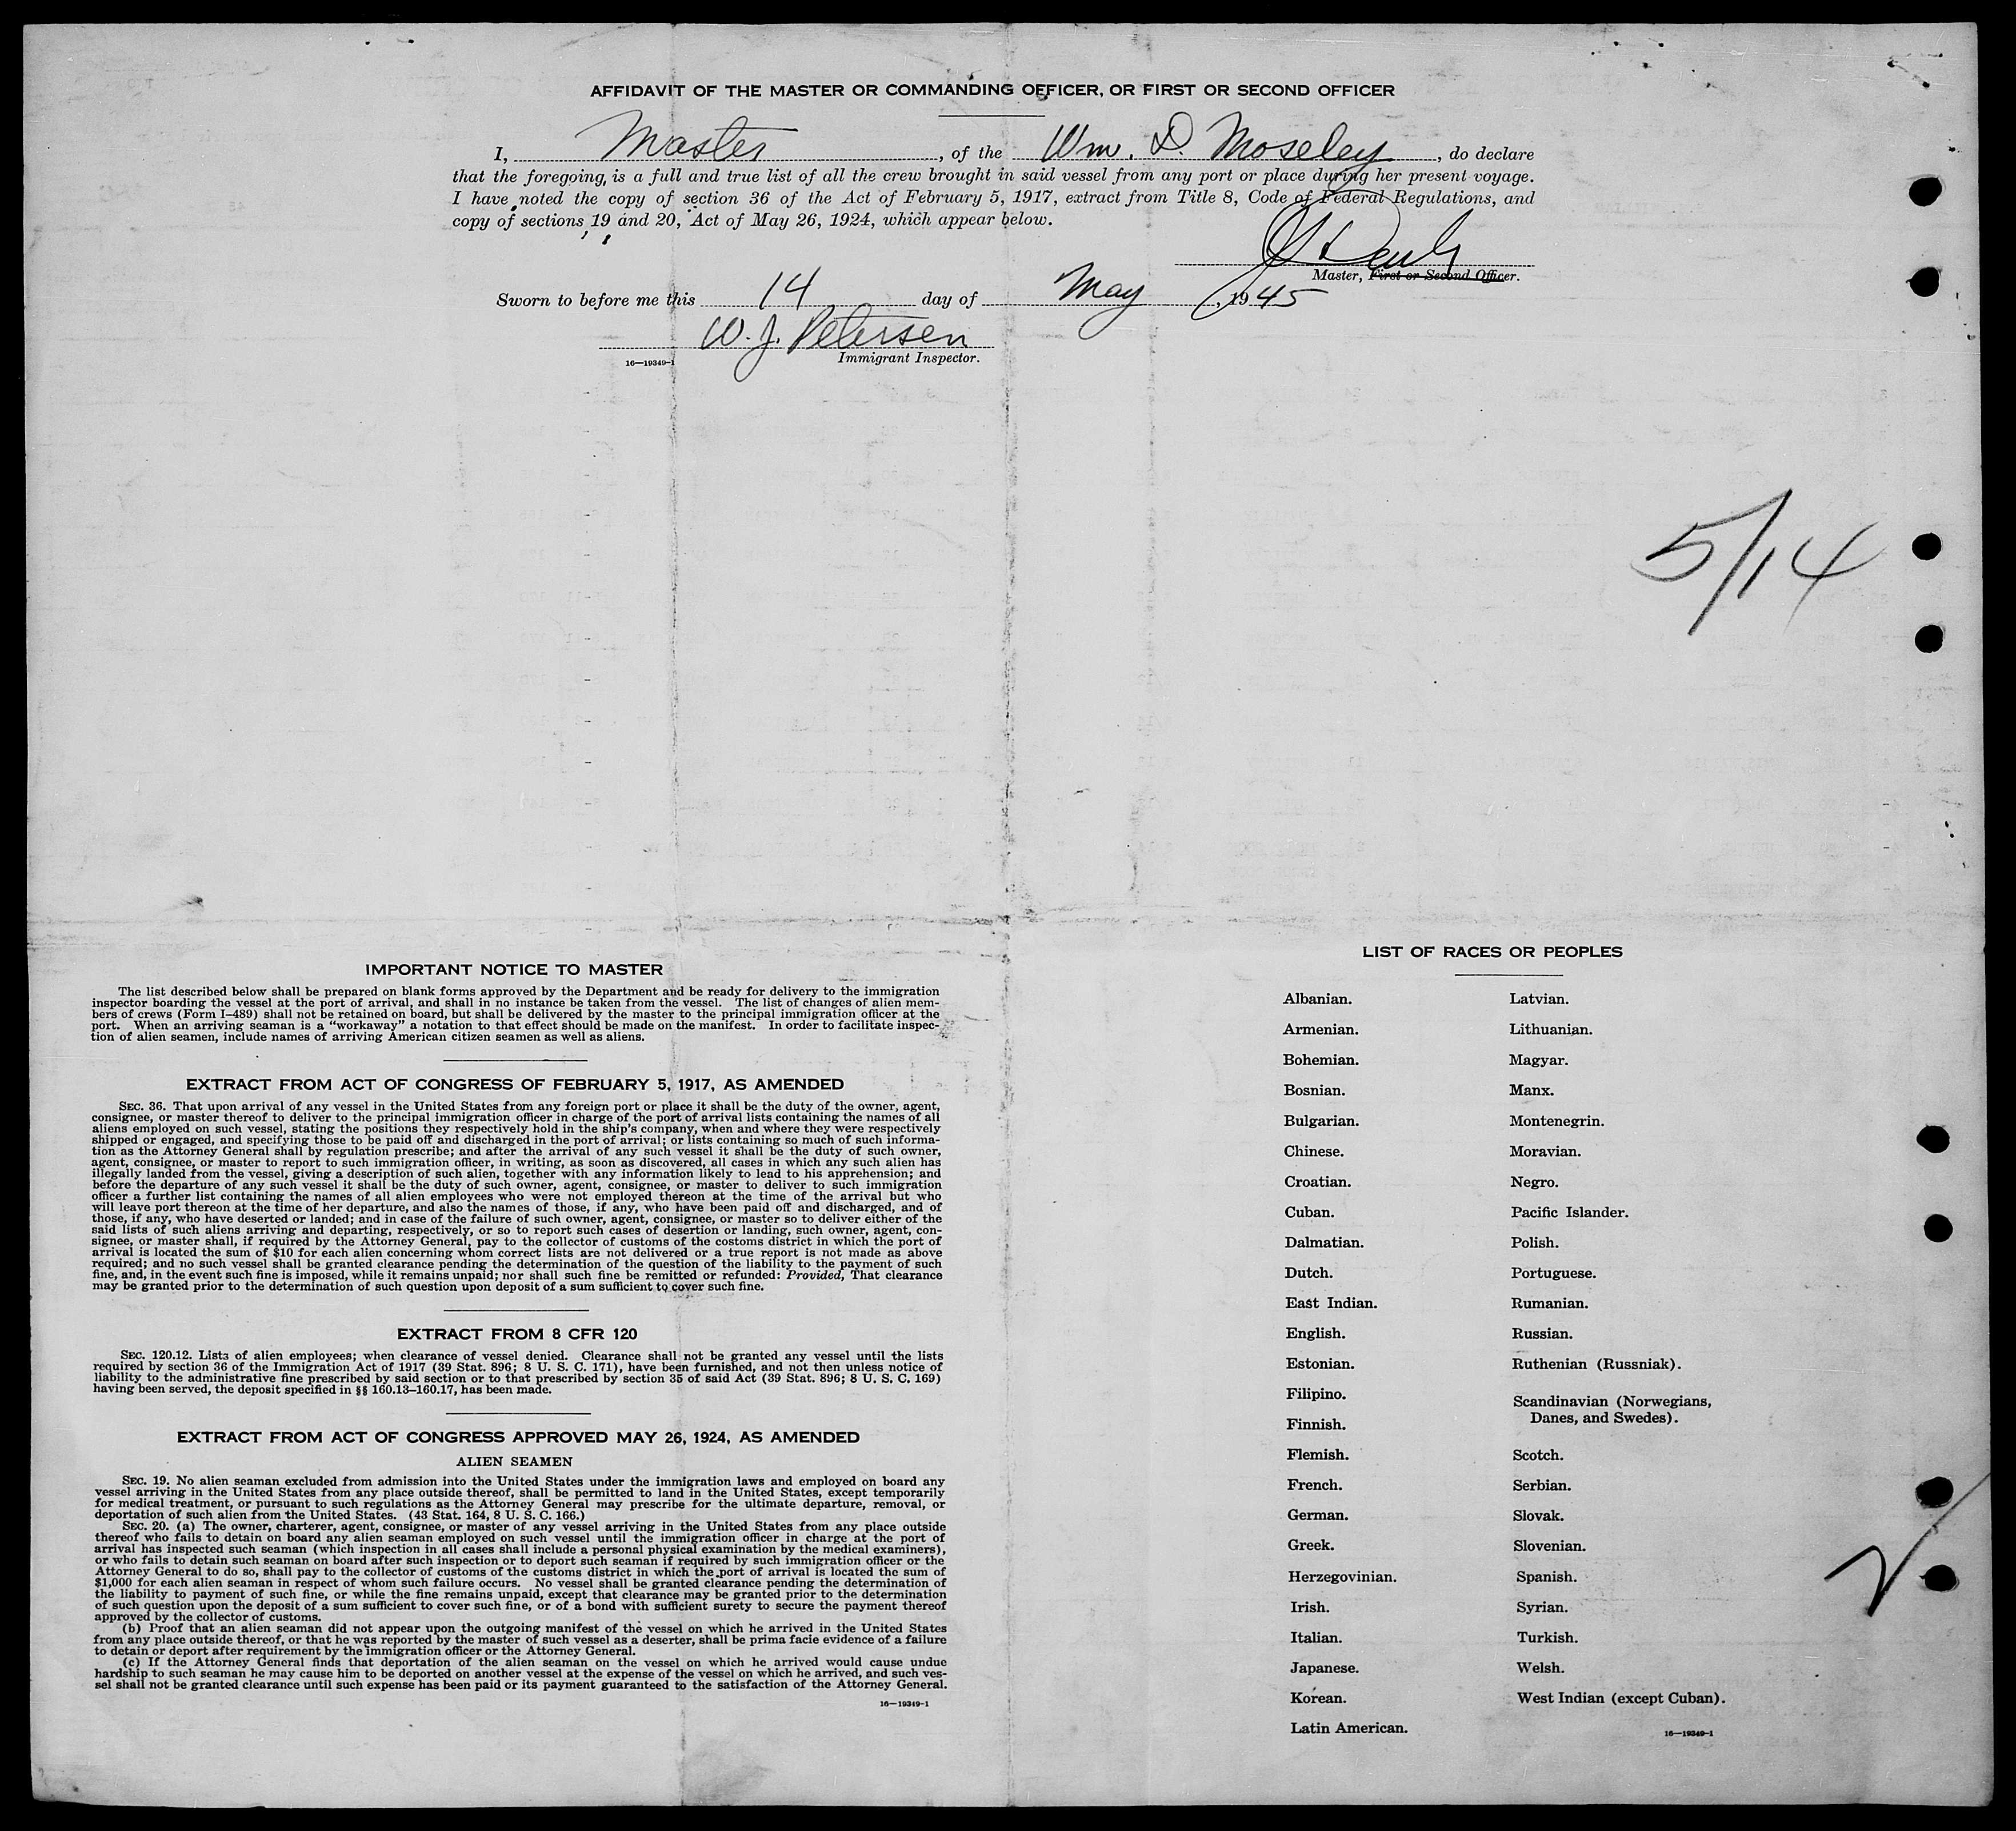 AFFIDAVIT OF THE MASTER OR COMMANDING OFFICER, OR FIRST OR SECOND OFFICER
I, Master, of the Wm. D. Moseley, do declare
that the foregoing is a full and true list of all the crew brought in said vessel from any port or place during her present voyage.
I have noted the copy of section 36 of the Act of February 5, 1917, extract from Title 8, Code of Federal Regulations, and
copy of sections 19 and 20, Act of May 26, 1924, which appear below.
Master, First or Second Officer.
Sworn to before me this 14 day of May, 1945
W. J. Petersen
16—19349-1 Immigrant Inspector.
5/14
IMPORTANT NOTICE TO MASTER
The list described below shall be prepared on blank forms approved by the Department and be ready for delivery to the immigration
inspector boarding the vessel at the port of arrival, and shall in no instance be taken from the vessel. The list of changes of alien mem-
bers of crews (Form I–489) shall not be retained on board, but shall be delivered by the master to the principal immigration officer at the
port. When an arriving seaman is a “workaway” a notation to that effect should be made on the manifest. In order to facilitate inspec-
tion of alien seamen, include names of arriving American citizen seamen as well as aliens.
EXTRACT FROM ACT OF CONGRESS OF FEBRUARY 5, 1917, AS AMENDED
SEC. 36. That upon arrival of any vessel in the United States from any foreign port or place it shall be the duty of the owner, agent,
consignee, or master thereof to deliver to the principal immigration officer in charge of the port of arrival lists containing the names of all
aliens employed on such vessel, stating the positions they respectively hold in the ship's company, when and where they were respectively
shipped or engaged, and specifying those to be paid off and discharged in the port of arrival; or lists containing so much of such informa-
tion as the Attorney General shall by regulation prescribe; and after the arrival of any such vessel it shall be the duty of such owner,
agent, consignee, or master to report to such immigration officer, in writing, as soon as discovered, all cases in which any such alien has
illegally landed from the vessel, giving a description of such alien, together with any information likely to lead to his apprehension; and
before the departure of any such vessel it shall be the duty of such owner, agent, consignee, or master to deliver to such immigration
officer a further list containing the names of all alien employees who were not employed thereon at the time of the arrival but who
will leave port thereon at the time of her departure, and also the names of those, if any, who have been paid off and discharged, and of
those, if any, who have deserted or landed; and in case of the failure of such owner, agent, consignee, or master so to deliver either of the
said lists of such aliens arriving and departing, respectively, or so to report such cases of desertion or landing, such owner, agent, con-
signee, or master shall, if required by the Attorney General, pay to the collector of customs of the costoms district in which the port of
arrival is located the sum of $10 for each alien concerning whom correct lists are not delivered or a true report is not made as above
required; and no such vessel shall be granted clearance pending the determination of the question of the liability to the payment of such
fine, and, in the event such fine is imposed, while it remains unpaid; nor shall such fine be remitted or refunded: Provided, That clearance
may be granted prior to the determination of such question upon deposit of a sum sufficient to cover such fine.
EXTRACT FROM 8 CFR 120
SEC. 120.12. Lists of alien employees; when clearance of vessel denied. Clearance shall not be granted any vessel until the lists
required by section 36 of the Immigration Act of 1917 (39 Stat. 896; 8 U. S. C. 171), have been furnished, and not then unless notice of
liability to the administrative fine prescribed by said section or to that prescribed by section 35 of said Act (39 Stat. 896; 8 U. S. C. 169)
having been served, the deposit specified in §§ 160.13–160.17, has been made.
EXTRACT FROM ACT OF CONGRESS APPROVED MAY 26, 1924, AS AMENDED
ALIEN SEAMEN
SEC. 19. No alien seaman excluded from admission into the United States under the immigration laws and employed on board any
vessel arriving in the United States from any place outside thereof, shall be permitted to land in the United States, except temporarily
for medical treatment, or pursuant to such regulations as the Attorney General may prescribe for the ultimate departure, removal, or
deportation of such alien from the United States. (43 Stat. 164, 8 U. S. C. 166.)
SEC. 20. (a) The owner, charterer, agent, consignee, or master of any vessel arriving in the United States from any place outside
thereof who fails to detain on board any alien seaman employed on such vessel until the immigration officer in charge at the port of
arrival has inspected such seaman (which inspection in all cases shall include a personal physical examination by the medical examiners),
or who fails to detain such seaman on board after such inspection or to deport such seaman if required by such immigration officer or the
Attorney General to do so, shall pay to the collector of customs of the customs district in which the port of arrival is located the sum of
$1,000 for each alien seaman in respect of whom such failure occurs. No vessel shall be granted clearance pending the determination of
the liability to payment of such fine, or while the fine remains unpaid, except that clearance may be granted prior to the determination
of such question upon the deposit of a sum sufficient to cover such fine, or of a bond with sufficient surety to secure the payment thereof
approved by the collector of customs.
(b) Proof that an alien seaman did not appear upon the outgoing manifest of the vessel on which he arrived in the United States
from any place outside thereof, or that he was reported by the master of such vessel as a deserter, shall be prima facie evidence of a failure
to detain or deport after requirement by the immigration officer or the Attorney General.
(c) If the Attorney General finds that deportation of the alien seaman on the vessel on which he arrived would cause undue
hardship to such seaman he may cause him to be deported on another vessel at the expense of the vessel on which he arrived, and such ves-
sel shall not be granted clearance until such expense has been paid or its payment guaranteed to the satisfaction of the Attorney General.
16—19349-1
LIST OF RACES OR PEOPLES
Albanian.
Armenian.
Bohemian.
Bosnian.
Bulgarian.
Chinese.
Croatian.
Cuban.
Dalmatian.
Dutch.
East Indian.
English.
Estonian.
Filipino.
Finnish.
Flemish.
French.
German.
Greek.
Herzegovinian.
Irish.
Italian.
Japanese.
Korean.
Latin American.
Latvian.
Lithuanian.
Magyar.
Manx.
Montenegrin.
Moravian.
Negro.
Pacific Islander.
Polish.
Portuguese.
Rumanian.
Russian.
Ruthenian (Russniak).
Scandinavian (Norwegians,
Danes, and Swedes).
Scotch.
Serbian.
Slovak.
Slovenian.
Spanish.
Syrian.
Turkish.
Welsh.
West Indian (except Cuban).
16—19349-1